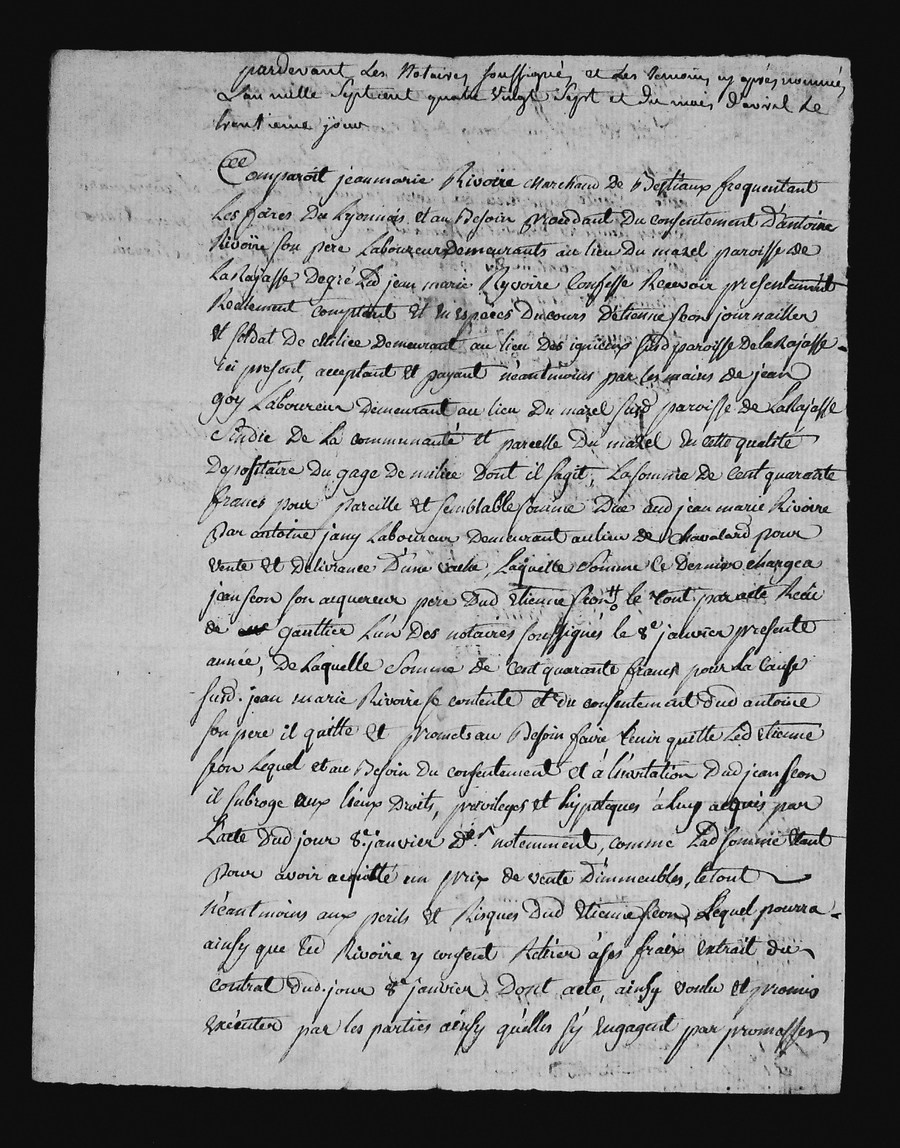 pardevant Les Notaires soussignés et Les temoins cy après nommés
L'an mille Sept cent quatre vingt Sept et du mois d'avril Le
trentieme jour
Comparoit jean marie Rivoire Marchand de Bestiaux frequentant
Les foires du Lyonnois et au Besoin procedant du consentement d'antoine
Rivoire son pere Laboureur Demeurants au lieu du mazel paroisse de
LaRajasse, De gré Led jean marie Ryvoire Confesse Recevoir presentement
Reelement comptant Et en especes du cours d'etienne feon journaillier
et soldat de Milice Demeurant au lieu des ignieux susd paroisse de laRajasse
ici present, acceptant et payant néantmoins par les mains de jean
goy Laboureur Demeurant au lieu du mazel susd paroisse de LaRajasse
Sindic de La communauté et parcelle du mazel en cette qualité
Depositaire du gage de milice Dont il sagit, La somme de Cent quarante
francs pour pareille et semblable somme Due aud jean marie Rivoire
Par antoine jany Laboureur Demeurant au lieu de Chavalard pour
vente et delivrance d'une vache, Laquelle somme ce dernier chargea
jean feon son acquereur pere dud Etienne feon le tout par acte Reçu
de gaultier L'un des notaires soussignés le 8e janvier presente
année, de Laquelle Somme de Cent quarante francs pour La cause
susd. jean marie Rivoire se contente et du consentement dud antoine
son pere il quitte et promet au Besoin faire tenir quitte Led Etienne
feon Lequel et au Besoin du consentement et à l'invitation dud jean feon
il subroge aux lieux droits, privileges et hypoteques à luy acquis par
L'acte dud jour 8e janvier der notemment, comme Lad somme étant
pour avoir acquitté un prix de vente d'immeubles, le tout
Néantmoins aux perils et Risques dud Etienne feon, Lequel pourra
ainsy que led Rivoire y consent Retirer à ses fraix extrait du
contrat dud. jour 8e janvier. Dont acte, ainsy voulu et promis
exécuter par les parties ainsy qu'elles s'y engagent par promesses